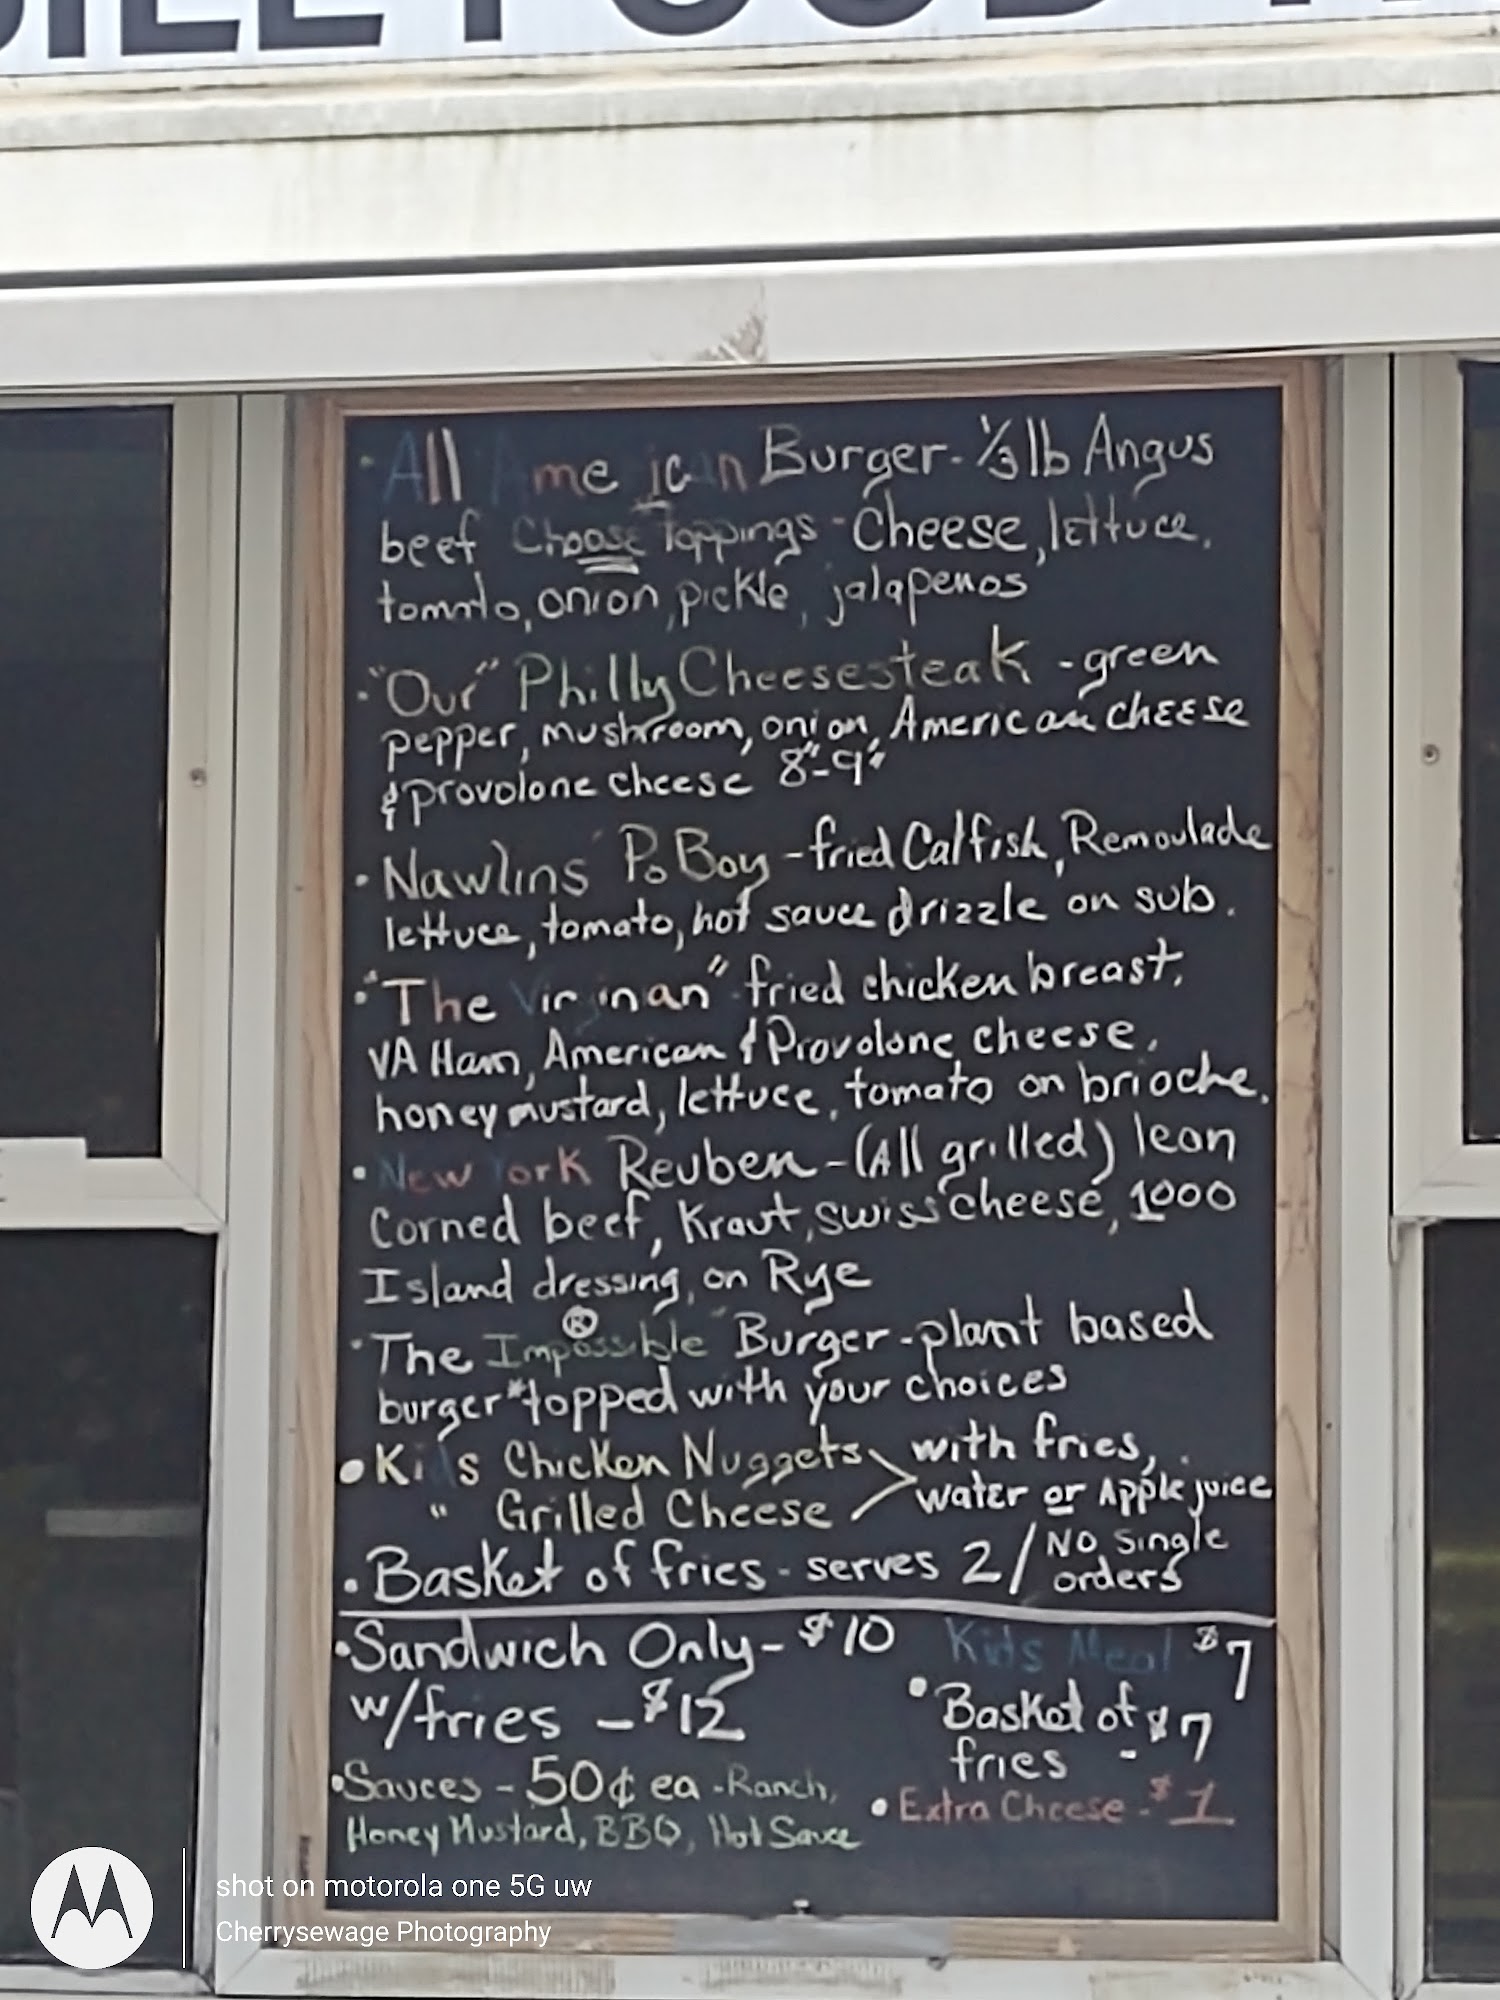 FOOD
• All American Burger - 1/3 lb Angus
beef Choose Toppings - Cheese, lettuce,
tomato, onion, pickle, jalapenos
• "Our" Philly Cheesesteak - green
pepper, mushroom, onion, American cheese
& provolone cheese 8"-9"
• Nawlins Po Boy - fried Catfish, Remoulade
lettuce, tomato, hot sauce drizzle on sub.
• "The Virginan" fried chicken breast,
VA Ham, American & Provolone cheese,
honey mustard, lettuce, tomato on brioche.
• New York Reuben - (All grilled) lean
Corned beef, Kraut, swiss cheese, 1000
Island dressing, on Rye
• The Impossible® Burger - plant based
burger * topped with your choices
• Kids Chicken Nuggets with fries,
" Grilled Cheese water or Apple juice
• Basket of fries - serves 2 / No single
orders
• Sandwich Only - $10 Kids Meal $7
w/fries - $12 • Basket of
fries - $7
• Sauces - 50¢ ea - Ranch, • Extra Cheese - $1
Honey Mustard, BBQ, Hot Sauce
shot on motorola one 5G uw
Cherrysewage Photography